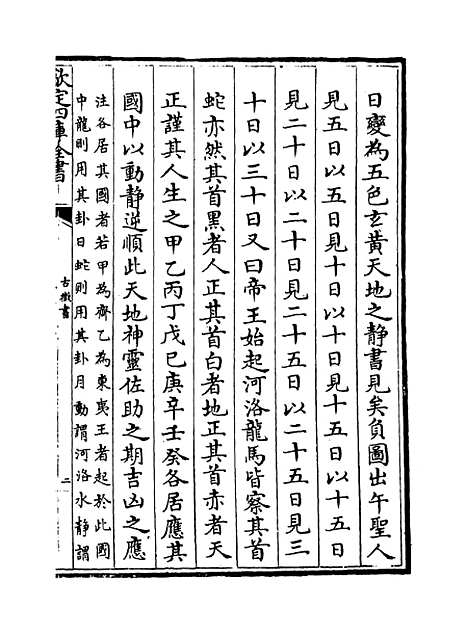 日變為五色玄黃天地之靜書見矣負圖出午聖人
見五日以五日見十日以十日見十五日以十五日
見二十日以二十日見二十五日以二十五日見三
十日以三十日又曰帝王始起河洛龍馬皆察其首
蛇亦然其首黑者人正其首白者地正其首赤者天
正謹其人生之甲乙丙丁戊己庚辛壬癸各居應其
國中以動靜逆順此天地神靈佐助之期吉凶之應
注各居其國者若甲為齊乙為東夷王者起於此國
中龍則用其卦日蛇則用其卦月動謂河洛水靜謂
欽定四庫全書
古微書
二